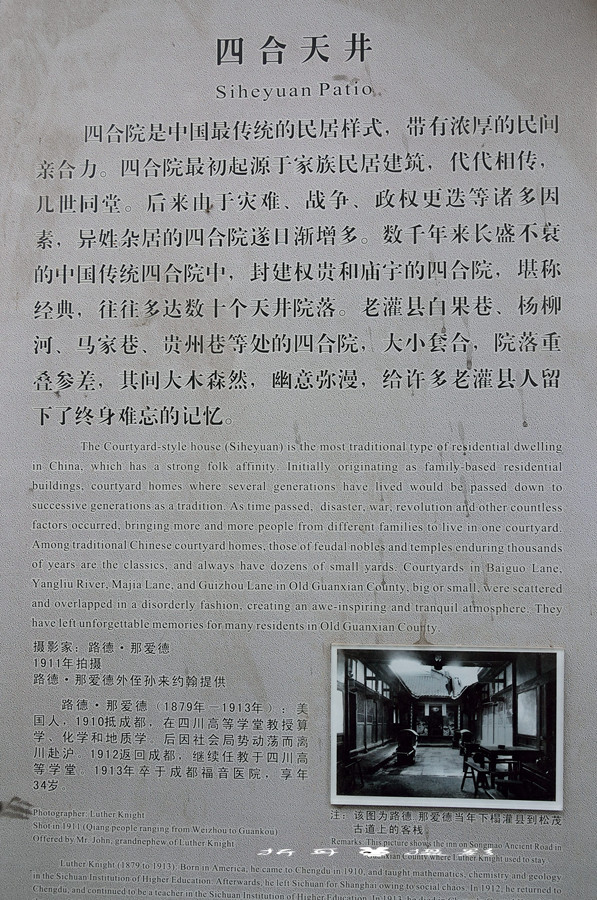 四合天井
Siheyuan Patio
四合院是中国最传统的民居样式，带有浓厚的民间
亲合力。四合院最初起源于家族民居建筑，代代相传，
几世同堂。后来由于灾难、战争、政权更迭等诸多因
素，异姓杂居的四合院遂日渐增多。数千年来长盛不衰
的中国传统四合院中，封建权贵和庙宇的四合院，堪称
经典，往往多达数十个天井院落。老灌县白果巷、杨柳
河、马家巷、贵州巷等处的四合院，大小套合，院落重
叠参差，其间大木森然，幽意弥漫，给许多老灌县人留
下了终身难忘的记忆。
The Courtyard-style house (Siheyuan) is the most traditional type of residential dwelling
in China, which has a strong folk affinity. Initially originating as family-based residential
buildings, courtyard homes where several generations have lived would be passed down to
successive generations as a tradition. As time passed, disaster, war, revolution and other countless
factors occurred, bringing more and more people from different families to live in one courtyard.
Among traditional Chinese courtyard homes, those of feudal nobles and temples enduring thousands
of years are the classics, and always have dozens of small yards. Courtyards in Baiguo Lane,
Yangliu River, Majia Lane, and Guizhou Lane in Old Guanxian County, big or small, were scattered
and overlapped in a disorderly fashion, creating an awe-inspiring and tranquil atmosphere. They
have left unforgettable memories for many residents in Old Guanxian County.
摄影家：路德·那爱德
1911年拍摄
路德·那爱德外侄孙来约翰提供
路德·那爱德（1879年－1913年）：美
国人，1910抵成都，在四川高等学堂教授算
学、化学和地质学。后因社会局势动荡而离
川赴沪。1912返回成都，继续任教于四川高
等学堂。1913年卒于成都福音医院，享年
34岁。
注：该图为路德.那爱德当年下榻灌县到松茂
古道上的客栈
Photographer: Luther Knight
Shot in 1911 (Qiang people ranging from Weizhou to Guankou)
Offered by Mr. John, grandnephew of Luther Knight
Remarks: This picture shows the inn on Songmao Ancient Road in
Guanxian County where Luther Knight used to stay
Luther Knight (1879 to 1913): Born in America, he came to Chengdu in 1910, and taught mathematics, chemistry and geology
in the Sichuan Institution of Higher Education. Afterwards, he left Sichuan for Shanghai owing to social chaos. In 1912, he returned to
Chengdu, and continued to be a teacher in the Sichuan Institution of Higher Education. In 1913, he died in